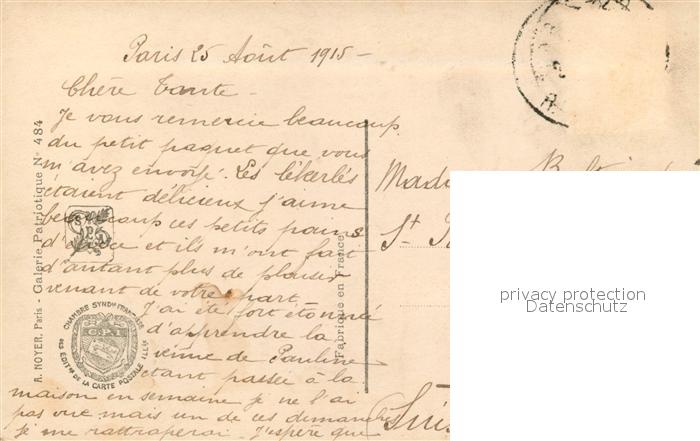 Paris 25 Août 1915 -
Chère Tante -
Je vous remercie beaucoup
du petit paquet que vous
m'avez envoyé. Les lékerlés
étaient délicieux j'aime
beaucoup ces petits pains
d'épice et ils m'ont fait
d'autant plus de plaisir
venant de votre part.
J'ai été fort étonnée
d'apprendre la
venue de Pauline
étant passée à la
maison en semaine je ne l'ai
pas vue mais un de ces dimanches
je me rattraperai. J'espère que
A. NOYER, Paris - Galerie Patriotique N° 484
CHAMBRE SYND^LE FRANÇAISE
DES EDIT^RS DE LA CARTE POSTALE ILL^EE
C.P.I.
Fabriqué en France
Mada
St
Suis
privacy protection
Datenschutz